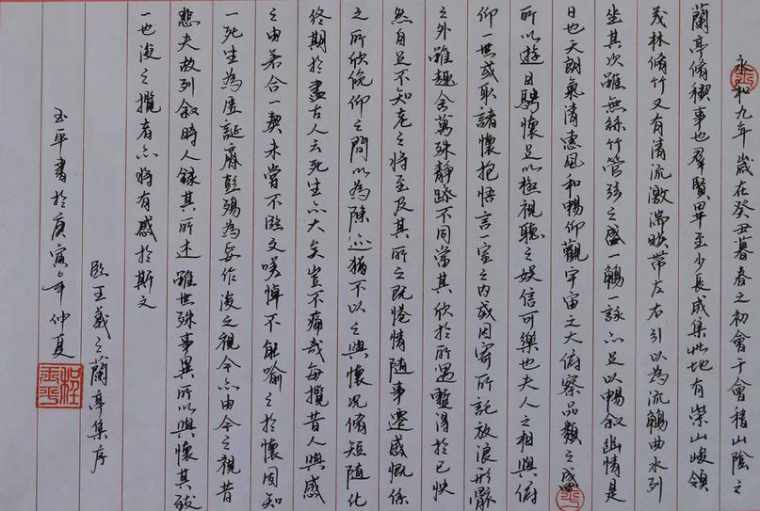 永和九年歲在癸丑暮春之初會于會稽山陰之
蘭亭脩稧事也羣賢畢至少長咸集此地有崇山峻領
茂林脩竹又有清流激湍暎帶左右引以為流觴曲水列
坐其次雖無絲竹管弦之盛一觴一詠亦足以暢敘幽情是
日也天朗氣清惠風和暢仰觀宇宙之大俯察品類之盛
所以遊目騁懷足以極視聽之娛信可樂也夫人之相與俯
仰一世或取諸懷抱悟言一室之內或因寄所託放浪形骸
之外雖趣舍萬殊靜躁不同當其欣於所遇暫得於己快
然自足不知老之將至及其所之既惓情隨事遷感慨係
之所欣俛仰之間以為陳迹猶不以之興懷況脩短隨化
終期於盡古人云死生亦大矣豈不痛哉每攬昔人興感
之由若合一契未嘗不臨文嗟悼不能喻之於懷固知
一死生為虛誕齊彭殤為妄作後之視今亦由今之視昔
悲夫故列敘時人錄其所述雖世殊事異所以興懷其致
一也後之攬者亦將有感於斯文
臨王羲之蘭亭集序
玉平書於庚寅年仲夏